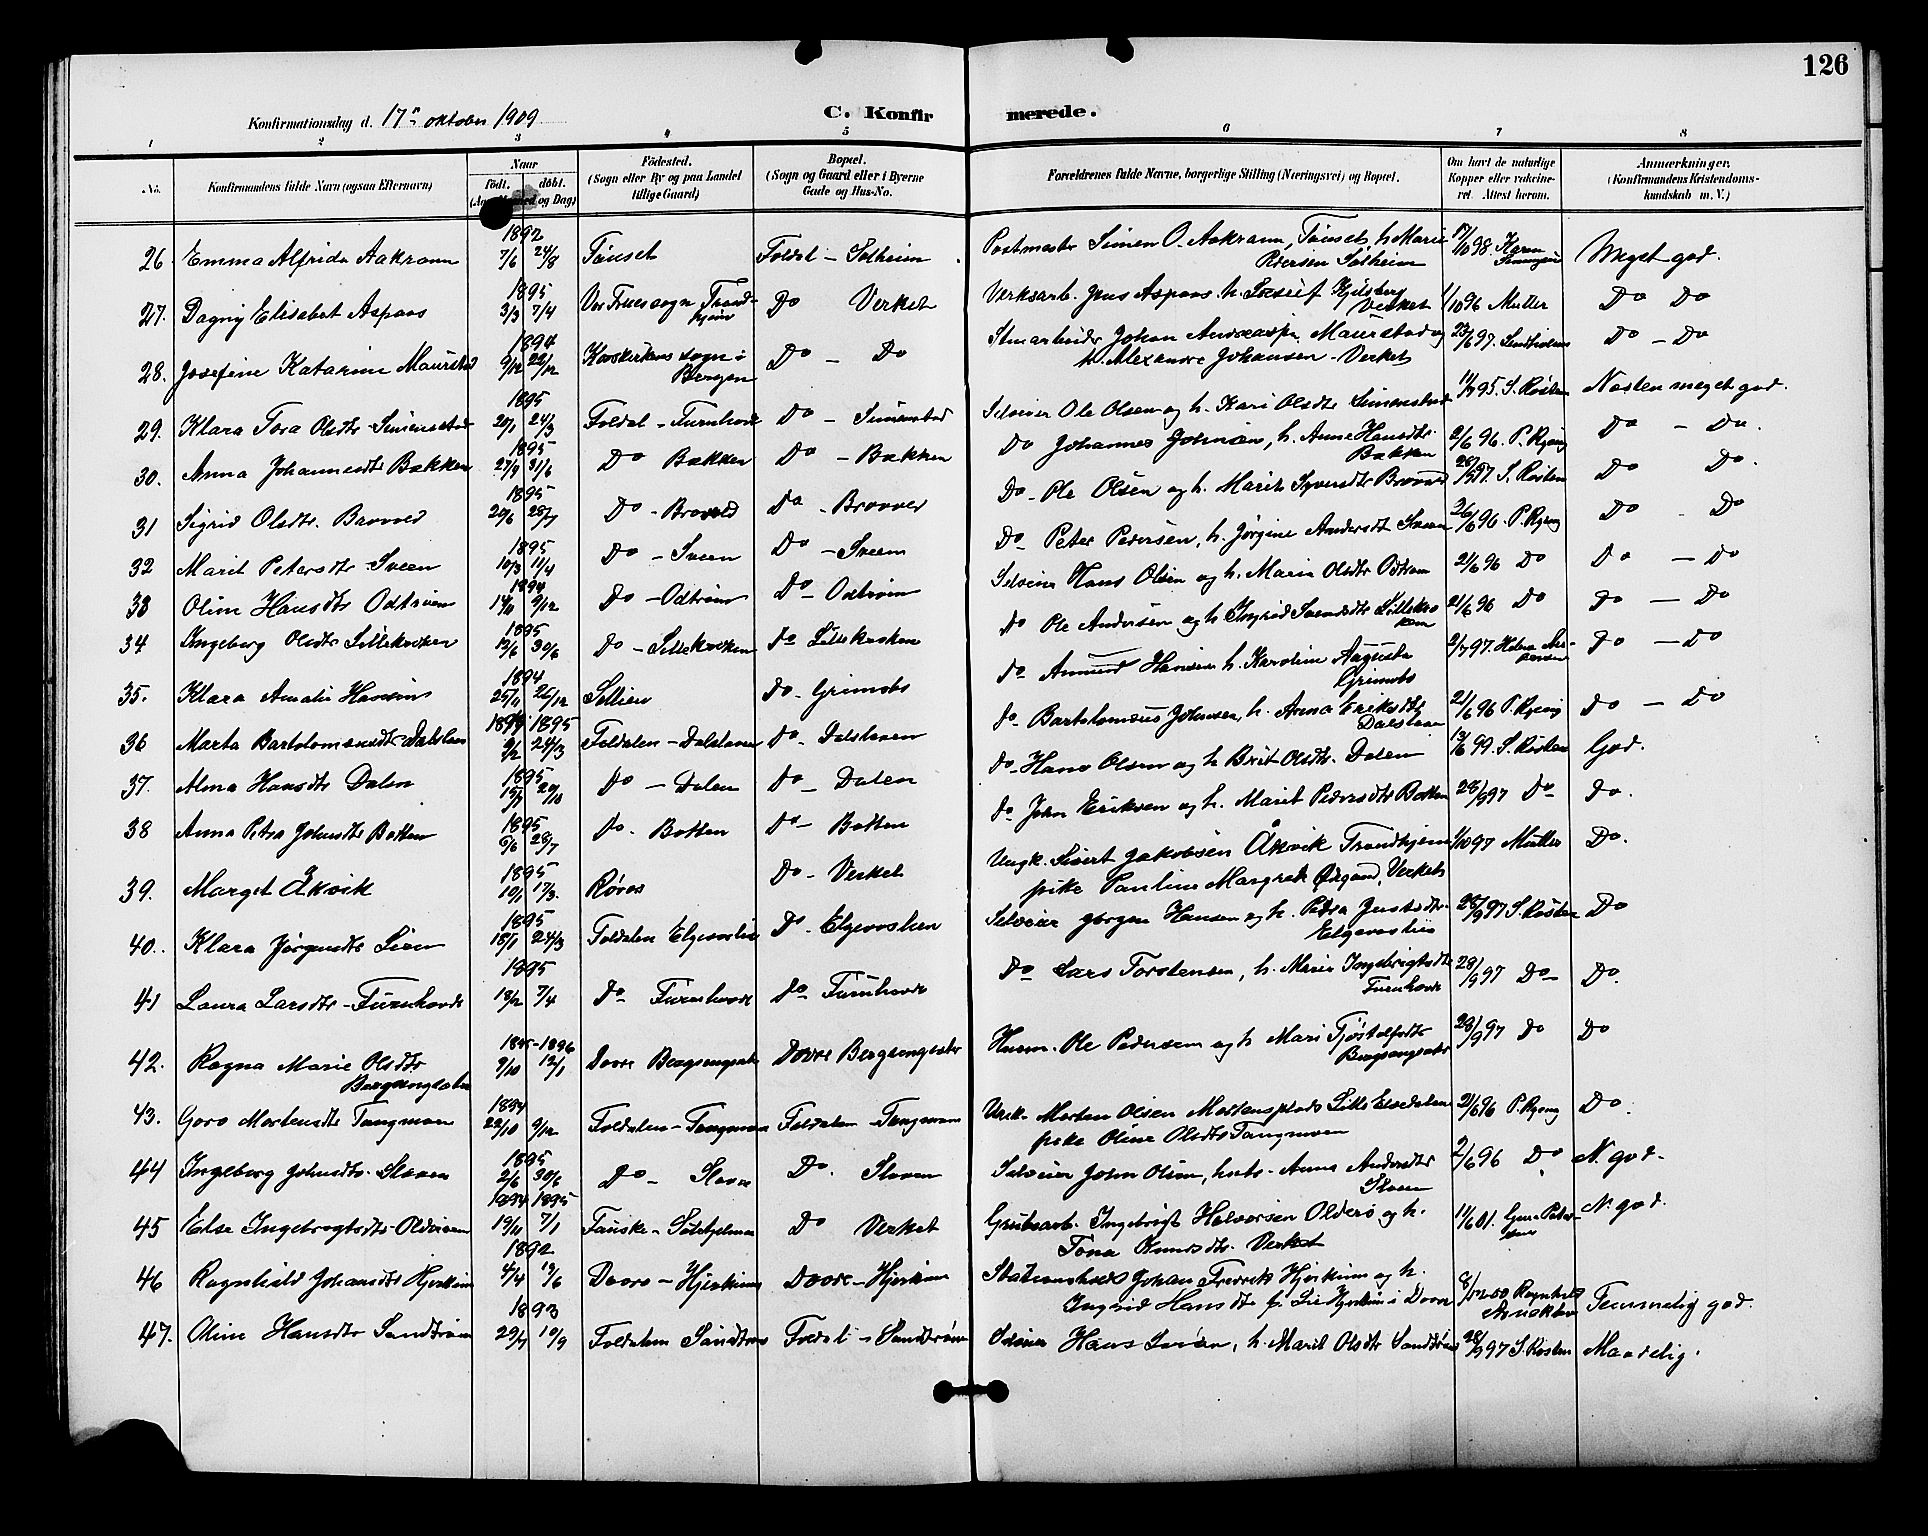 126
Konfirmationsdag d. 17de oktober 1909
C. Konfirmerede.
1 2 3 4 5 6 7 8
No. Konfirmandens fulde Navn (ogsaa Efternavn) Naar født. døbt. (Aar, Maaned og Dag) Fødested. (Sogn eller By og paa Landet tillige Gaard) Bopæl. (Sogn og Gaard eller i Byerne Gade og Hus-No.) Forældrenes fulde Navne, borgerlige Stilling (Næringsvei) og Bopæl. Om havt de naturlige Kopper eller vaccineret. Attest herom. Anmærkninger. (Konfirmandens Kristendomskundskab m. V.)
26. Emma Alfrida Aakrann 1892 7/6 24/8 Tönset Foldal - Solheim Postmester Simen O. Aakrann, Tönset, h. Marie Pedersen Solheim 17/10 98. Karen Meget god.
27. Dagny Elisabet Aspaas 1895 3/3 7/4 Vor Frues sogn Trondhjem Do Verket Verksarb. Jens Aspaas h. Kjelsberg Verket 1/10 96 Müller Do Do
28. Josefine Katarine Maurstad 1894 9/12 22/12 Korskirkens sogn i Bergen Do - Do Johan Andreas Maurstad og h. Alexandra Johansen - Verket 23/6 97. Lindholm Do - Do
29. Klara Tora Olsdtr Simenstad 1895 20/1 24/3 Foldal - Furuhovde Do - Simenstad Selveier Ole Olsen og h. Kari Olsdtr Simenstad 11/9 95. S. Rosten Næsten meget god.
30. Anna Johannesdtr Bakken 1895 27/3 31/6 Do Bakken Do - Bakken Do Johannes Johnsen, h. Anne Hansdtr. Bakken 2/6 96. P. Ryeng Do - Do.
31 Sigrid Olsdtr. Brovold 1895 20/6 28/7 Do - Brovold Do - Brovold Do - Ole Olsen og h. Marit Syversdtr Brovold 28/9 97. S. Rosten Do Do.
32 Marit Petersdtr Sveen 1895 10/3 11/4 Do - Sveen Do - Sveen Do - Peter Pedersen, h. Jörgine Andersdt Sveen 2/6 96. P. Ryeng Do - Do
33 Oline Hansdtr Odtröen 1894 14/11 9/12 Do - Odtröen Do - Odtröen Selveier Hans Olsen og h. Marie Olsdtr Odtröen 2/6 96 Do Do - Do
34 Ingeborg Olsdtr Lillekroken 1895 13/6 30/6 Do - Lillekroken Do Lillekroken Do Ole Andersen og h. Ingrid Svendsdtr Lillekroken 2/6 96 Do Do - Do
35. Klara Amalie Hansen 1894 25/11 26/12 Sollien Do - Grimsbo Do Amund Hansen h. Karoline Augusta Grimsbo 2/7 97. Helene Do - Do
36 Marta Bartolomæusdtr Dalslaaen 1895 1895 9/2 24/3 Foldalen - Dalslaaen Do - Dalslaaen Do Bartolomæus Johnsen, h. Anna Eriksdtr Dalslaaen 2/6 96 P. Ryeng Do - Do
37. Alma Hansdtr Dalen 1895 15/9 20/10 Do - Dalen Do - Dalen Do - Hans Olsen og h Brit Olsdtr. Dalen 13/6 99. S. Rosten God.
38 Anna Petra Johnsdtr Botten 1895 6/6 28/7 Do. Botten Do - Botten Do John Eriksen og h. Marit Pedersdtr Botten 28/9 97 Do Do.
39. Marget Åkvik 1895 10/1 17/3. Røros Do - Verket Ungk. Sivert Jakobsen Åkvik Trondhjem 1/10 97 Müller Do.
pike Pauline Margrete Ødegaard, Verket
40. Klara Jörgensdtr Lien 1895 18/1 24/3 Foldalen Elgevaslien Do. Elgevaslien Selveier Jørgen Hansen og h. Petra Jensdtr. Elgevaslien 28/9 97 S. Rosten Do
41 Laura Larsdtr - Furuhovde 1895 18/2 7/4 Do - Furuhovde Do - Furuhovde Do Lars Torstensen, h. Marie Ingebrigtsdtr Furuhovde 28/9 97 Do - Do.
42. Ragna Marie Olsdtr Bergsengsæter 1895 - 1896 9/10 12/1 Dovre Bergsengsæter Dovre Bergsengsæter Husm. Ole Pedersen og h Mari Tjöstolfsdtr Bergsengsæter 28/9 97 Do Do
43. Goro Mortensdtr Tangmoen 1894 22/10 9/12 Foldalen - Tangmoen Foldalen - Tangmoen Ungk. Morten Olsen Mortensplads Lille Elvedalen 2/6 96 P. Ryeng Do.
pike Oline Olsdtr Tangmoen
44 Ingeborg Johnsdtr. Sloeen 1895 2/6 30/6 Do - Sloeen Do. Sloeen Selveier John Olsen, hustr. Anne Andersdtr Sloeen 2/6 96 Do N. god.
45 Else Ingebrigtsdtr Olderöen 1894 1895 19/11 7/1 Fauske - Do Verket Grubearb. Ingebrigt Halvorsen Olderö og h. Tona Knudsdtr. Verket 11/6 01. N. god.
46 Ragnhild Johansdtr Hjerkinn 1892 4/4 19/6 Dovre - Hjerkinn Dovre - Hjerkinn Johan Fredrik Hjerkinn og h. Ingrid Hansdtr f. Lie Hjerkinn i Dovre 8/12 00 Ragnhild Temmelig god.
47. Oline Hansdtr Sandtröen 1893 29/7 10/9 Foldalen Sandtröen Foldal - Sandtröen Selveier Hans h. Marit Olsdtr Sandtröen 28/9 97 S. Rosten Maadelig.